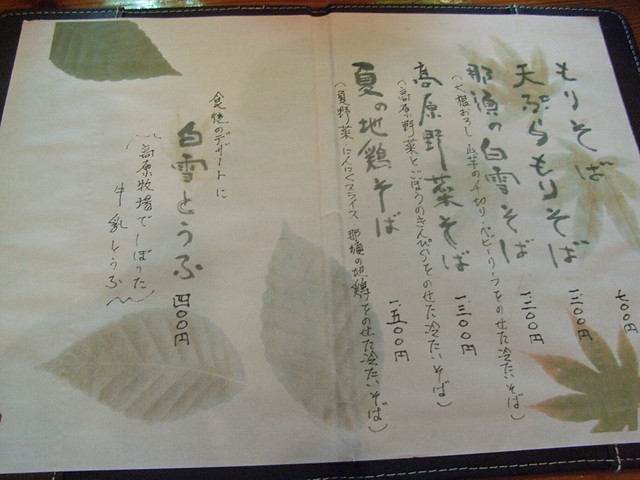 もりそば 七〇〇円
天ぷらもりそば 一、二〇〇円
那須の白雪そば 一、二〇〇円
(大根おろし・山芋の千切り・ベビーリーフをのせた冷たいそば)
高原野菜そば 一、三〇〇円
(高原野菜とごぼうのきんぴらをのせた冷たいそば)
夏の地鶏そば 一、五〇〇円
(夏野菜・にんにくスライス 那須の地鶏をのせた冷たいそば)
食後のデザートに
白雪とうふ 四〇〇円
高原牧場でしぼった
牛乳とうふ